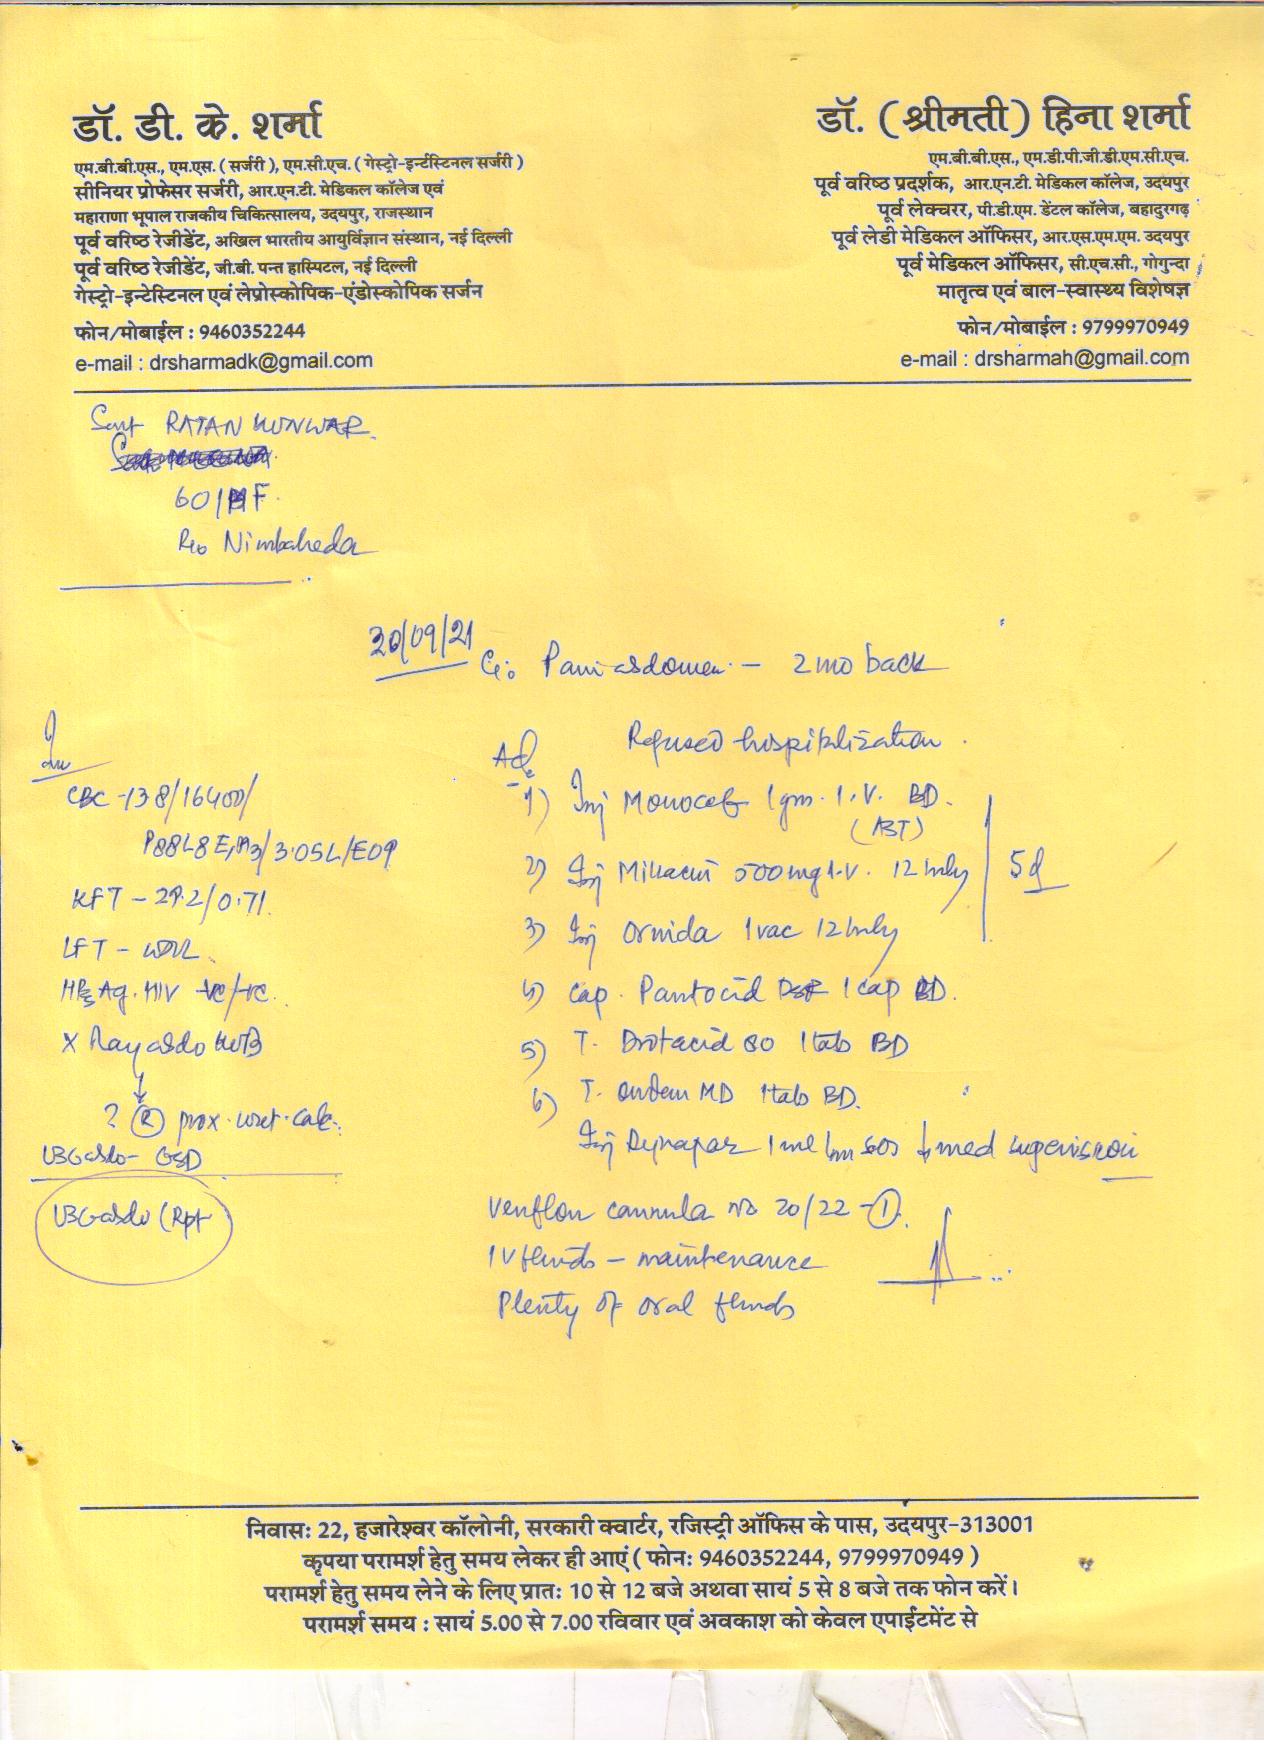 डॉ. डी. के. शर्मा
एम.बी.बी.एस., एम.एस. ( सर्जरी ), एम.सी.एच. ( गेस्ट्रो-इन्टेस्टिनल सर्जरी )
सीनियर प्रोफेसर सर्जरी, आर.एन.टी. मेडिकल कॉलेज एवं
महाराणा भूपाल राजकीय चिकित्सालय, उदयपुर, राजस्थान
पूर्व वरिष्ठ रेजीडेंट, अखिल भारतीय आयुर्विज्ञान संस्थान, नई दिल्ली
पूर्व वरिष्ठ रेजीडेंट, जी.बी. पन्त हास्पिटल, नई दिल्ली
गेस्ट्रो-इन्टेस्टिनल एवं लेप्रोस्कोपिक-एंडोस्कोपिक सर्जन
फोन/मोबाईल : 9460352244
e-mail : drsharmadk@gmail.com
डॉ. ( श्रीमती ) हिना शर्मा
एम.बी.बी.एस., एम.डी.पी.जी.डी.एम.सी.एच.
पूर्व वरिष्ठ प्रदर्शक, आर.एन.टी. मेडिकल कॉलेज, उदयपुर
पूर्व लेक्चरर, पी.डी.एम. डेंटल कॉलेज, बहादुरगढ़
पूर्व लेडी मेडिकल ऑफिसर, आर.एस.एम.एम. उदयपुर
पूर्व मेडिकल ऑफिसर, सी.एच.सी., गोगुन्दा
मातृत्व एवं बाल-स्वास्थ्य विशेषज्ञ
फोन/मोबाईल : 9799970949
e-mail : drsharmah@gmail.com
Smt RATAN KUNWAR
60/F
R/o Nimbaheda
30/09/21
C/o Pain abdomen - 2 mo back
Inv
CBC -13.8/16400/
P88L8E1M3/3.05L/E09
KFT - 29.2/0.71
LFT - WNL
HBsAg. HIV -ve/-ve
X Ray abdo KUB
? R prox. uret. calc.
USG abdo - GSD
USG abdo (Rpt
Adv
Refused hospitilization
1) Inj Monocef 1gm. I.V. BD.
(AST)
2) Inj Mikacin 500mg I.V. 12 hrly
3) Inj Ornida 1vac 12 hrly
5d
4) Cap. Pantocid DSR 1 cap BD.
5) T. Drotacid 80 1tab BD
6) T. Ondem MD 1tab BD.
Inj Dynapar 1ml im sos med supervision
Venflon cannula no 20/22 - 1
IV fluids - maintenance
Plenty of oral fluids
निवास: 22, हजारेश्वर कॉलोनी, सरकारी क्वार्टर, रजिस्ट्री ऑफिस के पास, उदयपुर-313001
कृपया परामर्श हेतु समय लेकर ही आएं ( फोन: 9460352244, 9799970949 )
परामर्श हेतु समय लेने के लिए प्रात: 10 से 12 बजे अथवा सायं 5 से 8 बजे तक फोन करें।
परामर्श समय : सायं 5.00 से 7.00 रविवार एवं अवकाश को केवल एपाईंटमेंट से